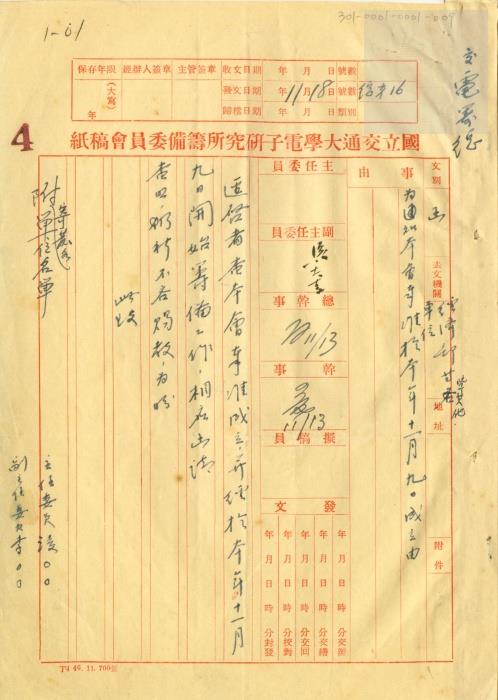 301-0001-0001-009
1-01
保存年限
（大寫）
年
經辦人簽章
主管簽章
收文日期
年 月 日
號數
發文日期
年11月18日
號數
16
歸檔日期
年 月 日
類別
4
國立交通大學電子研究所籌備委員會稿紙
文別
函
去文機關
經濟部
單位
地址
附件
事由
為通知本會奉准於本年十一月九日成立由
主任委員
副主任委員
總幹事
11/13
幹事
11/13
擬稿員
發文
年 月 日 時 分交辦
年 月 日 時 分交繕
年 月 日 時 分交回
年 月 日 時 分校對
年 月 日 時 分封發
逕啓者查本會奉准成立,並經於本年十一月
九日開始籌備工作,相應函請
查照,
不吝賜教,為盼
此致
附單位名單
主任委員凌〇〇
副主任委員李〇〇
Td 49. 11. 700張